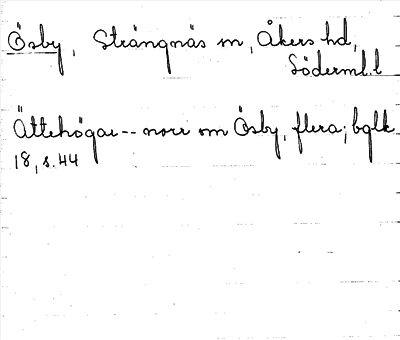 Ösby, Strängnäs m, Åkers hd,
Söderml.l
Ättehögar -- norr om Ösby, flera; bglk
18, s. 44